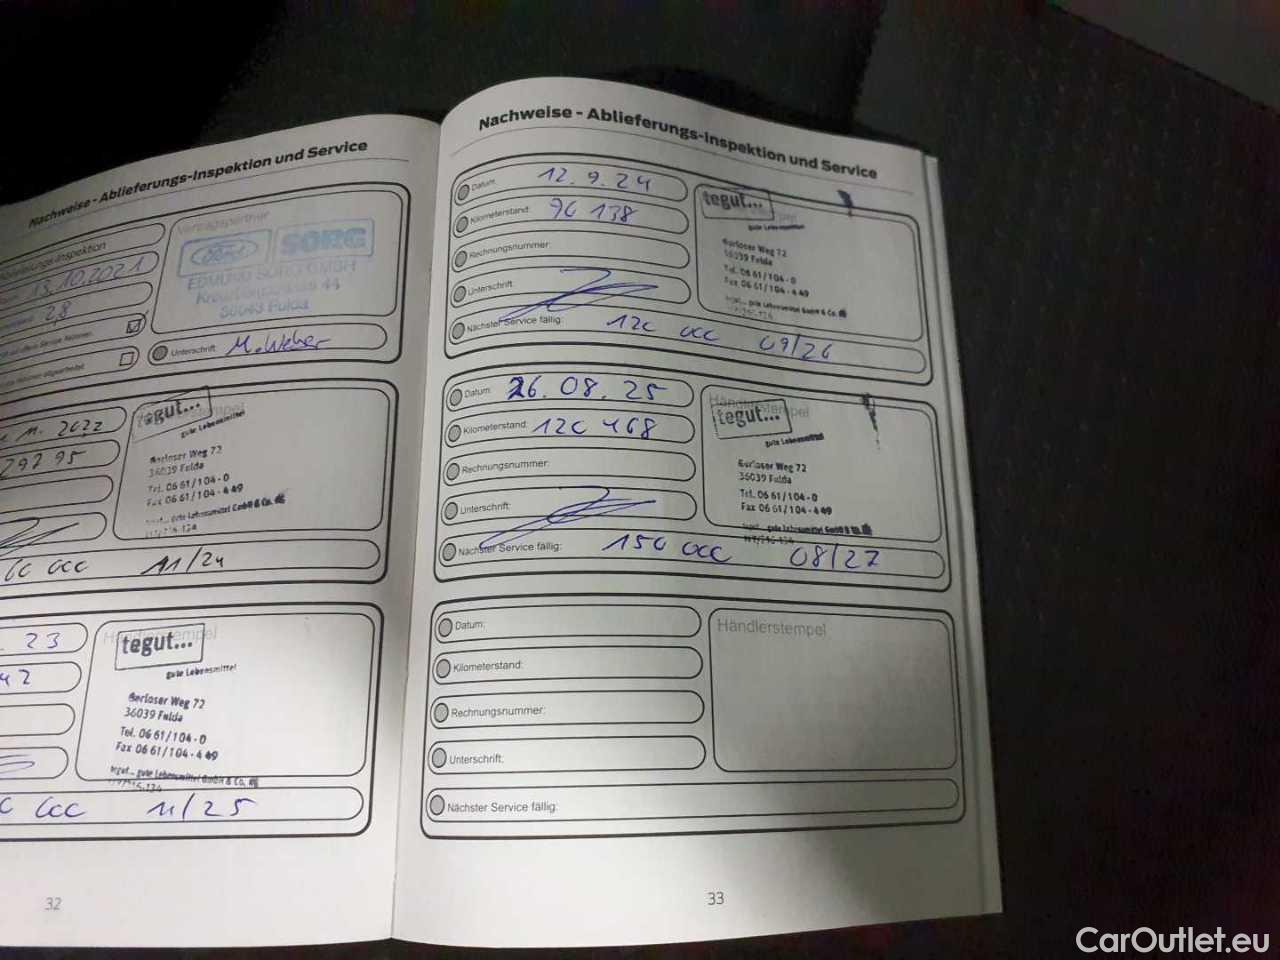 Nachweise - Ablieferungs-Inspektion und Service
Ablieferungs-Inspektion
13.10.2021
2,8
Unterschrift: M. Weber
Vertragspartner
Ford SORG
EDMUND SORG GMBH
Kreuzbergstrasse 44
36043 Fulda
2022
29295
000 11/24
Händlerstempel
tegut...
gute Lebensmittel
Gerloser Weg 72
36039 Fulda
Tel. 06 61 / 104 - 0
Fax 06 61 / 104 - 4 49
tegut... gute Lebensmittel GmbH & Co. KG
23
42
000 11/25
Händlerstempel
tegut...
gute Lebensmittel
Gerloser Weg 72
36039 Fulda
Tel. 06 61 / 104 - 0
Fax 06 61 / 104 - 4 49
tegut... gute Lebensmittel GmbH & Co. KG
32
Nachweise - Ablieferungs-Inspektion und Service
Datum: 12.9.24
Kilometerstand: 96 138
Rechnungsnummer:
Unterschrift:
Nächster Service fällig: 120 000 09/26
tegut...
gute Lebensmittel
Gerloser Weg 72
36039 Fulda
Tel. 06 61 / 104 - 0
Fax 06 61 / 104 - 4 49
tegut... gute Lebensmittel GmbH & Co. KG
Datum: 26.08.25
Kilometerstand: 120 468
Rechnungsnummer:
Unterschrift:
Nächster Service fällig: 150 000 08/27
Händlerstempel
tegut...
gute Lebensmittel
Gerloser Weg 72
36039 Fulda
Tel. 06 61 / 104 - 0
Fax 06 61 / 104 - 4 49
tegut... gute Lebensmittel GmbH & Co. KG
Datum:
Kilometerstand:
Rechnungsnummer:
Unterschrift:
Nächster Service fällig:
Händlerstempel
33
CarOutlet.eu